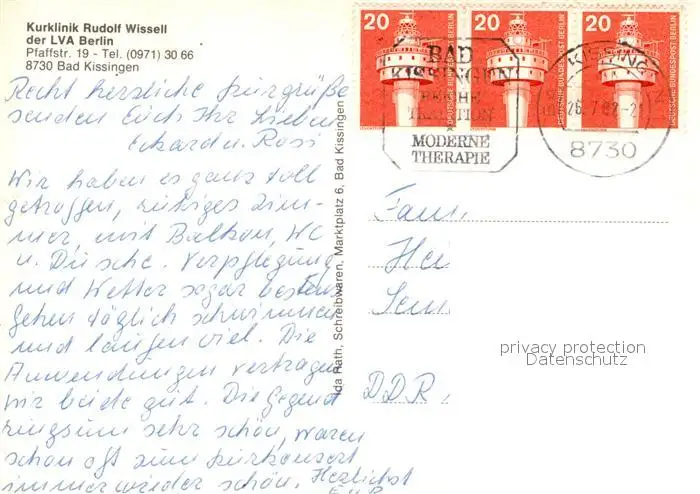 Kurklinik Rudolf Wissell
der LVA Berlin
Pfaffstr. 19 - Tel. (0971) 30 66
8730 Bad Kissingen
Recht herzliche Kurgrüße
senden Euch Ihr Lieben
Eckard u. Rosi
Wir haben es ganz toll
getroffen, ruhiges Zim-
mer, mit Balkon, WC
u. Dusche. Verpflegung
und Wetter sogar bestens
Gehen täglich schwimmen
und laufen viel. Die
Anwendungen vertragen
wir beide gut. Die Gegend
ringsum sehr schön, waren
schon oft zum Kurkonzert
immer wieder schön. Herzlichst
E.u.R.
Ida Rath, Schreibwaren, Marktplatz 6, Bad Kissingen
20 20 20
DEUTSCHE BUNDESPOST BERLIN
DEUTSCHE BUNDESPOST BERLIN
DEUTSCHE BUNDESPOST BERLIN
BAD
KISSINGEN
TRADITION
MODERNE
THERAPIE
KISSINGEN
8730
Fam.
Hei
Sem
DDR
privacy protection
Datenschutz